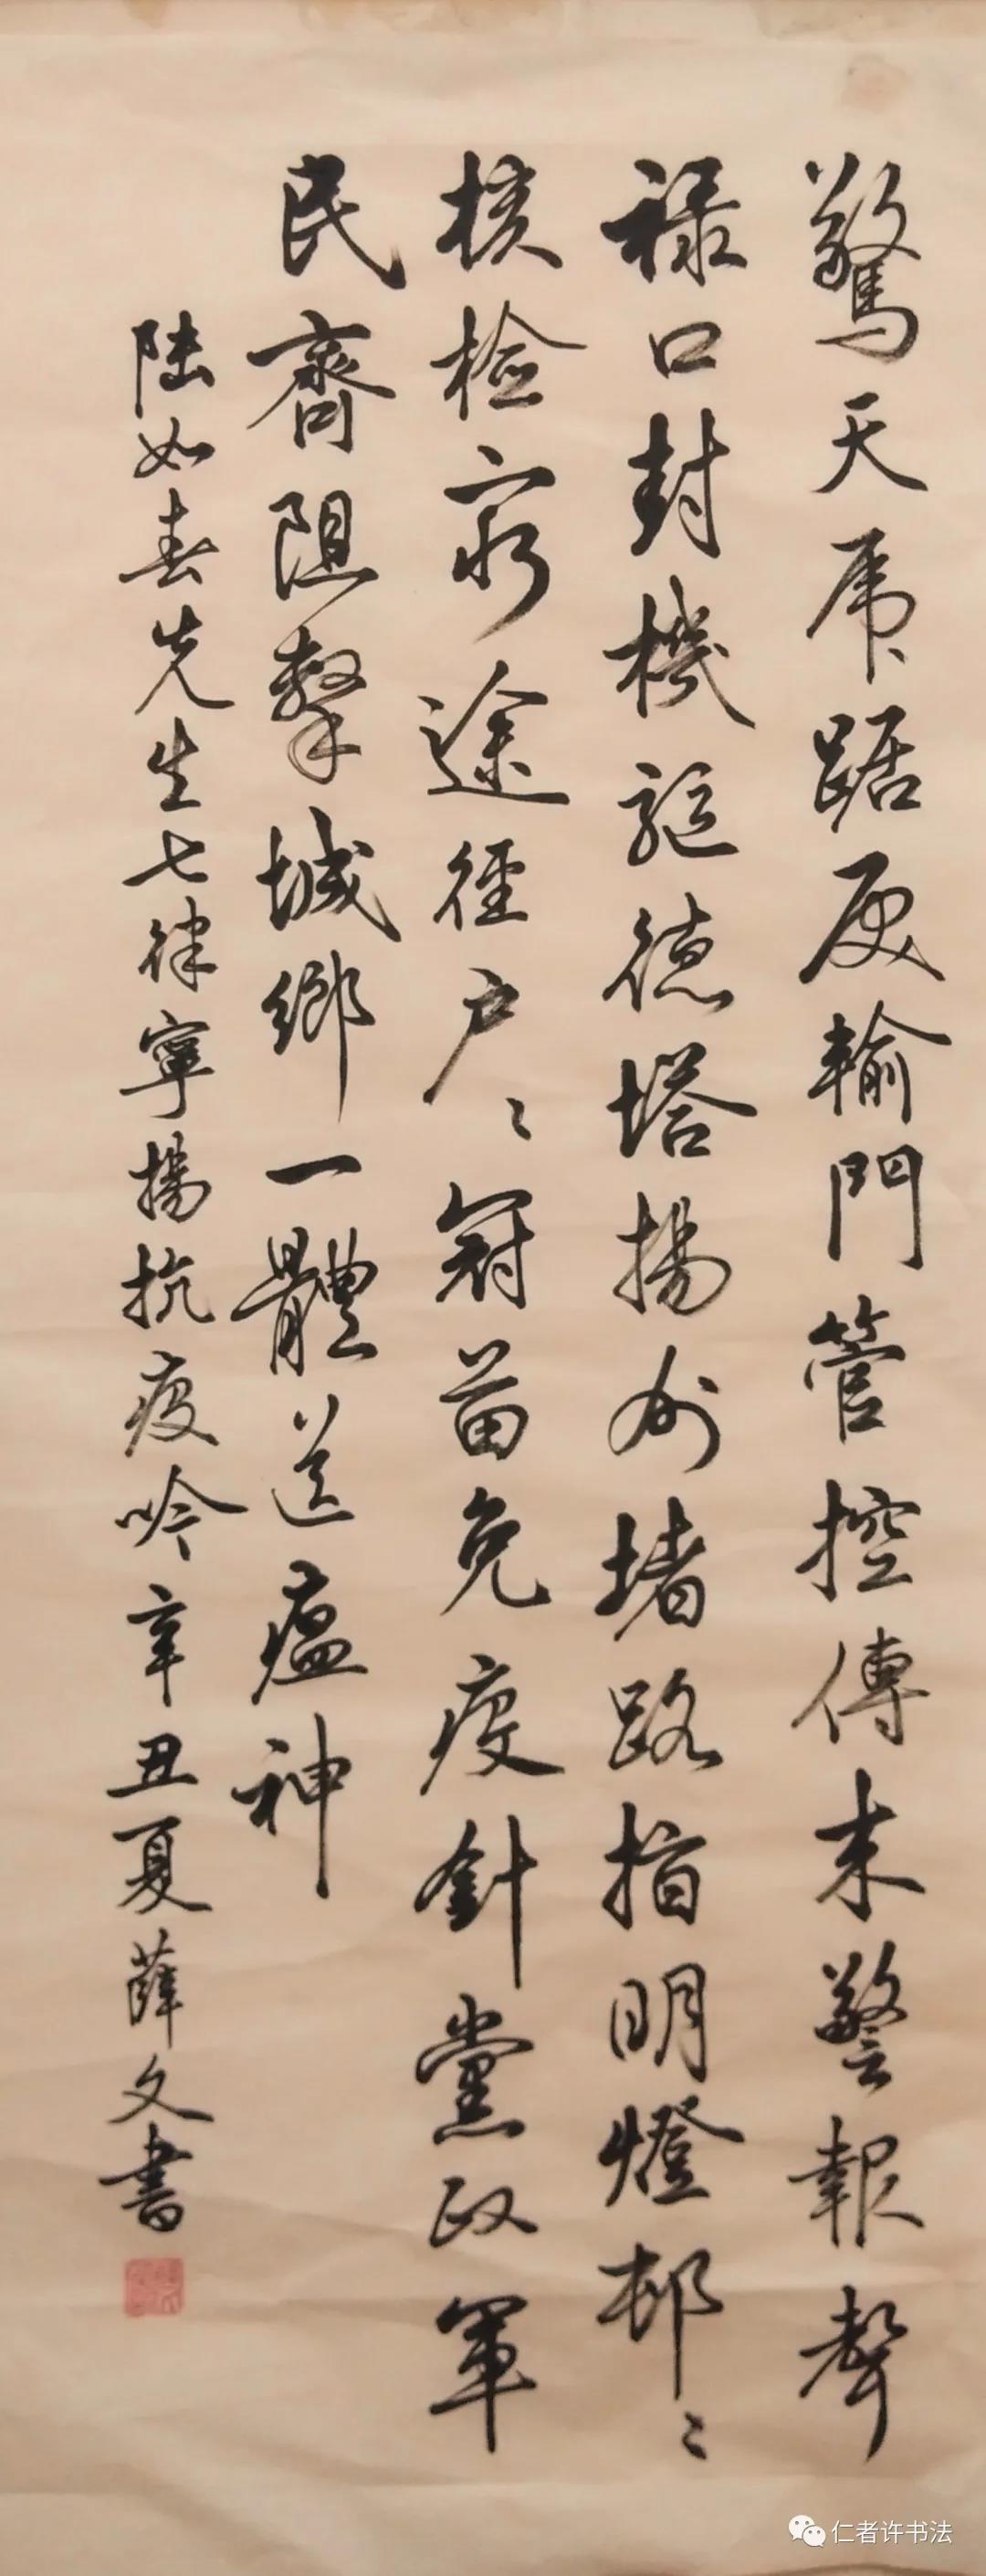 驚天虎踞輸門管控傳来警報聲
禄口封機驅德塔揚州堵路指明燈邨々
核檢窮途徑户々冠苗免疫針黨政軍
民齊阻擊城鄉一體送瘟神
陆如春先生七律寧揚抗疫吟辛丑夏薛文書
仁者许书法